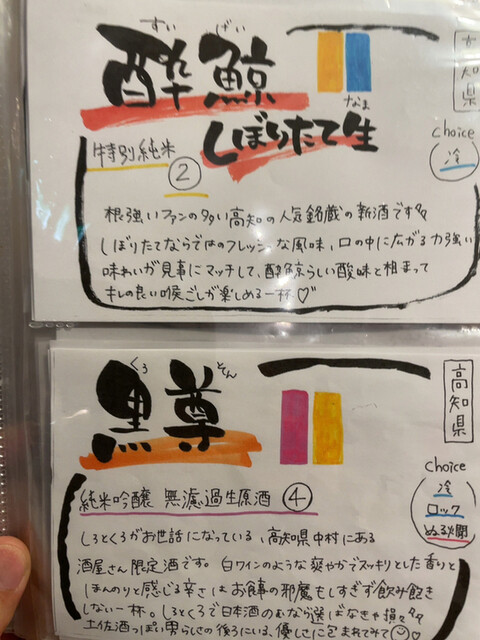 すい げい
酔鯨
なま
しぼりたて生
高知県
choice
冷
特別純米
②
根強いファンの多い高知の人気銘蔵の新酒です
しぼりたてならではのフレッシュな風味、口の中に広がる力強い
味わいが見事にマッチして、酔鯨らしい酸味と相まって
キレの良い喉ごしが楽しめる一杯♡
くろ そん
黒尊
高知県
Choice
冷
ロック
ぬる燗
純米吟醸 無濾過生原酒 ④
しろとくろがお世話になっている、高知県中村にある
酒屋さん限定酒です。白ワインのような爽やかでスッキリとした香りと
ほんのりと感じる辛さはお食事の邪魔もしすぎず飲み飽き
しない一杯。しろとくろで日本酒のむなら選ばなきゃ損々
土佐酒っぽい男らしさの後ろにいる、優しさに包まれてて